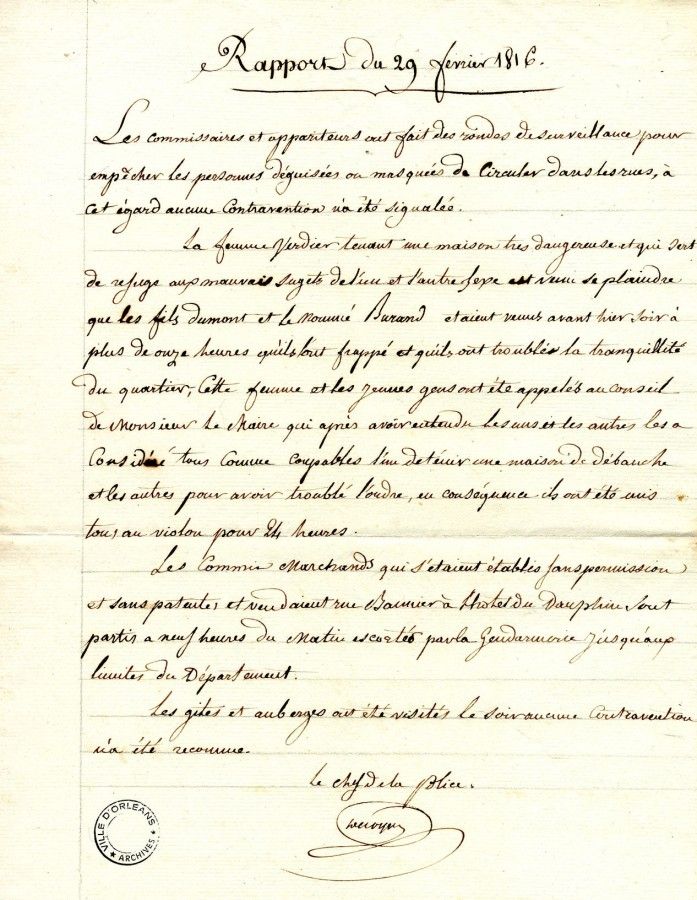 Rapport du 29 fevrier 1816.
Les commissaires et appariteurs ont fait des rondes de surveillance pour
empêcher les personnes déguisées ou masquées de Circuler dans les rues, à
cet égard aucune Contravention n'a été signalée.
La femme Verdier tenant une maison tres dangereuse et qui sert
de refuge aux mauvais sugets de l'un et l'autre sexe est venu se plaindre
que les fils dumont et le nommé Burand etaient venus avant hier soir à
plus de onze heures qu'ils l'ont frappé et qu'ils ont troublés la tranquillité
du quartier, Cette femme et les jeunes gens ont été appelés au conseil
de Monsieur le Maire qui après avoir entendu les uns et les autres les a
Considéré tous comme coupables l'un de tenir une maison de débauche
et les autres pour avoir troublé l'ordre, en conséquence ils ont été mis
tous au violon pour 24 heures.
Les Commis Marchands qui s'etaient établis sans permission
et sans patentes et vendaient rue Bannier à l'hotel du Dauphin, sont
partis a neuf heures du Matin escortés par la Gendarmerie jusqu'aux
limites du Département.
Les gites et auberges ont été visités le soir aucune Contravention
n'a été reconnue.
Le chef de la police.
VILLE D'ORLÉANS
ARCHIVES